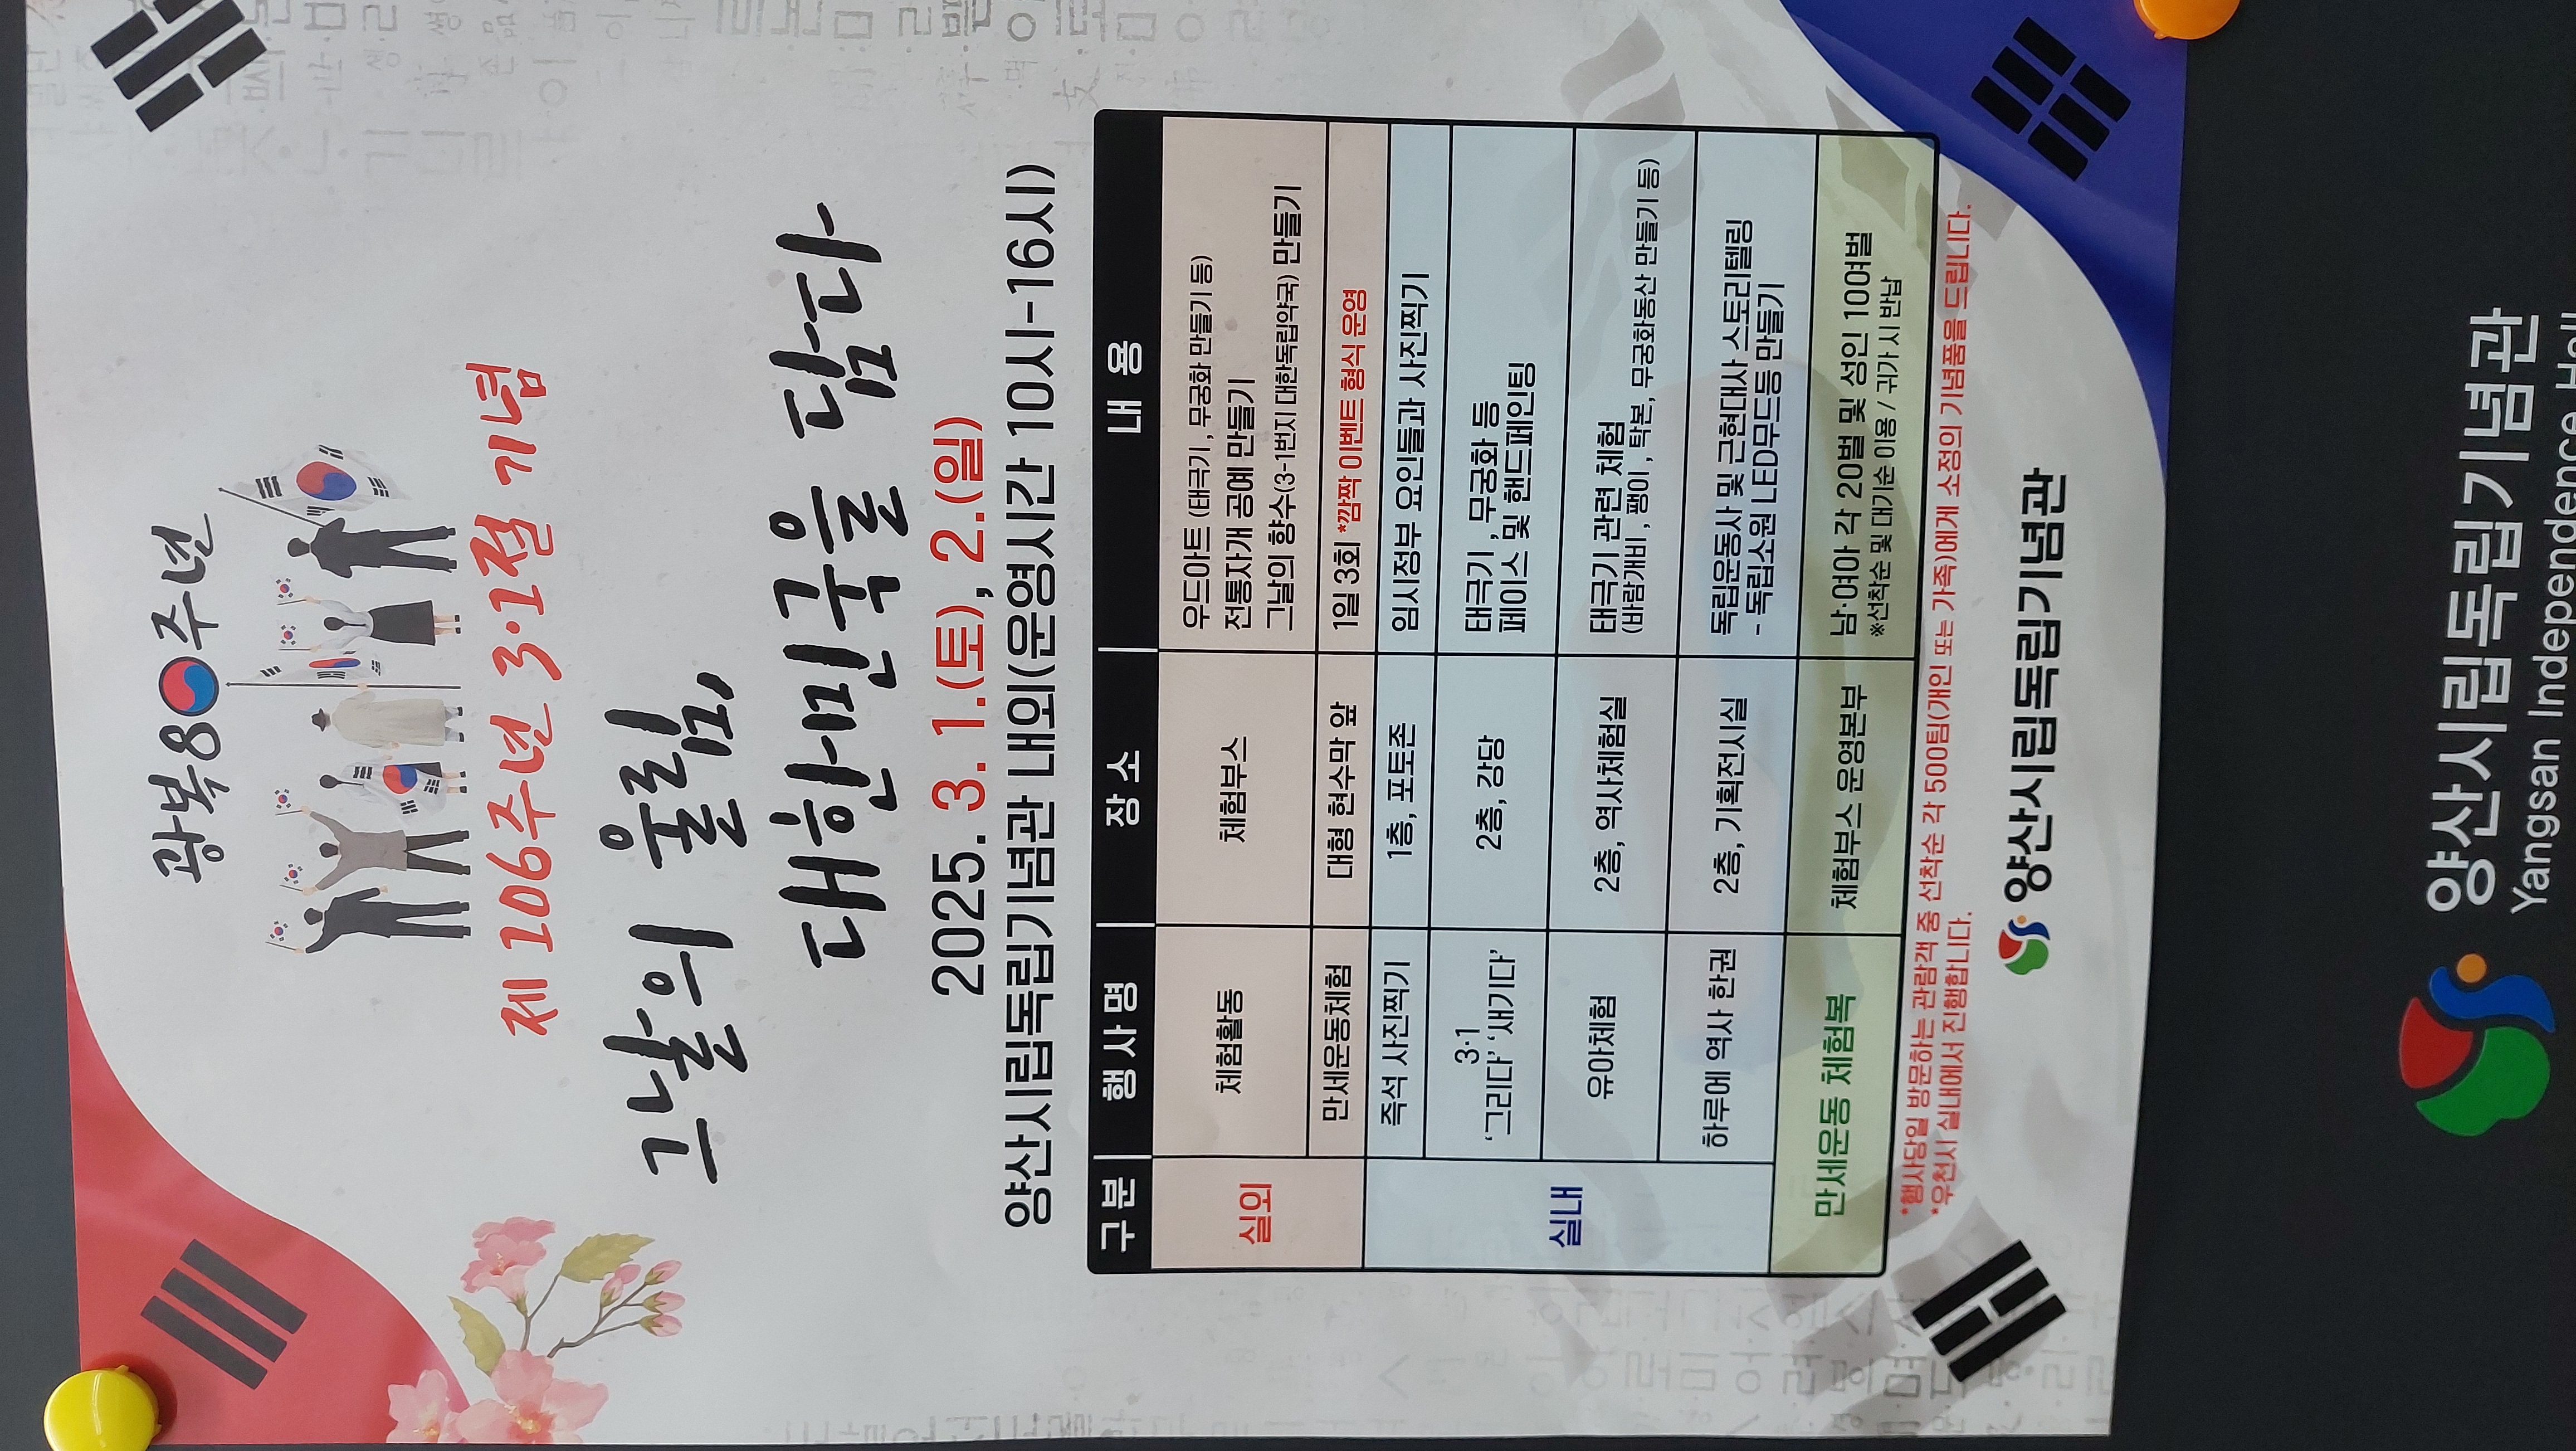 광복80주년
제 106주년 3·1절 기념
그날의 울림,
대한민국을 담다
2025. 3. 1.(토), 2.(일)
양산시립독립기념관 내외(운영시간 10시-16시)
구분 행사명 장소 내용
실외
체험활동 체험부스
우드아트 (태극기, 무궁화 만들기 등)
전통자개 공예 만들기
그날의 향수(3-1번지 대한독립약국) 만들기
만세운동체험 대형 현수막 앞 1일 3회 *깜짝 이벤트 형식 운영
실내
즉석 사진찍기 1층, 포토존 임시정부 요인들과 사진찍기
3·1
'그리다' '새기다'
2층, 강당
태극기, 무궁화 등
페이스 및 핸드페인팅
유아체험 2층, 역사체험실
태극기 관련 체험
(바람개비, 팽이, 탁본, 무궁화동산 만들기 등)
하루에 역사 한권 2층, 기획전시실
독립운동사 및 근현대사 스토리텔링
- 독립소원 LED무드등 만들기
만세운동 체험복 체험부스 운영본부
남·여아 각 20벌 및 성인 100여벌
※선착순 및 대기순 이용 / 귀가 시 반납
*행사당일 방문하는 관람객 중 선착순 각 500팀(개인 또는 가족)에게 소정의 기념품을 드립니다.
*우천시 실내에서 진행합니다.
양산시립독립기념관
양산시립독립기념관
Yangsan Independence Hall